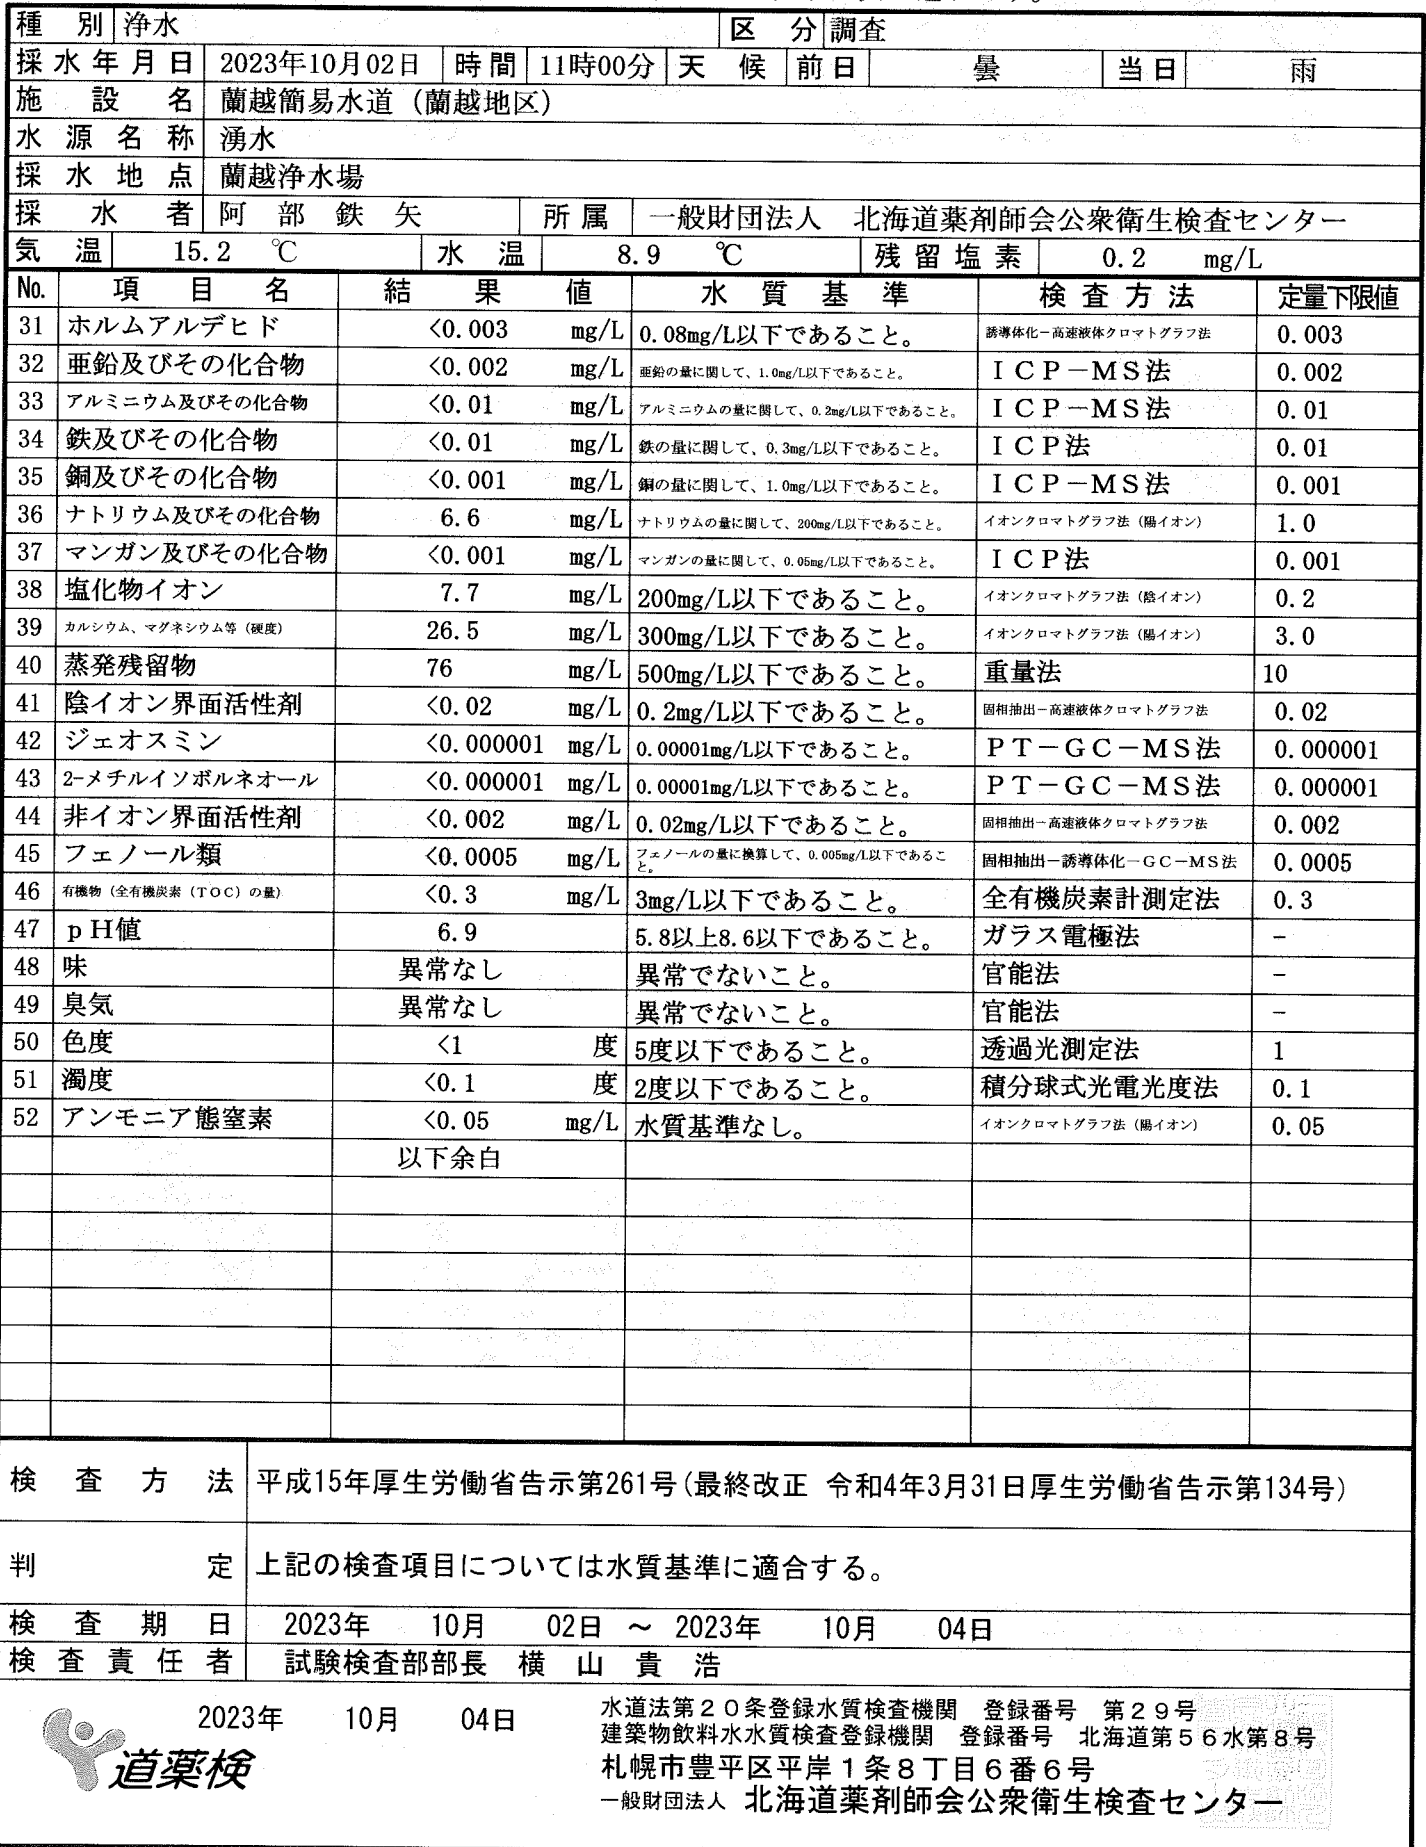 種別 浄水 区分 調査
採水年月日 2023年10月02日 時間 11時00分 天候 前日 曇 当日 雨
施設名 蘭越簡易水道（蘭越地区）
水源名称 湧水
採水地点 蘭越浄水場
採水者 阿部鉄矢 所属 一般財団法人 北海道薬剤師会公衆衛生検査センター
気温 15.2 ℃ 水温 8.9 ℃ 残留塩素 0.2 mg/L
No. 項目名 結果値 水質基準 検査方法 定量下限値
31 ホルムアルデヒド <0.003 mg/L 0.08mg/L以下であること。 誘導体化－高速液体クロマトグラフ法 0.003
32 亜鉛及びその化合物 <0.002 mg/L 亜鉛の量に関して、1.0mg/L以下であること。 ＩＣＰ－ＭＳ法 0.002
33 アルミニウム及びその化合物 <0.01 mg/L アルミニウムの量に関して、0.2mg/L以下であること。 ＩＣＰ－ＭＳ法 0.01
34 鉄及びその化合物 <0.01 mg/L 鉄の量に関して、0.3mg/L以下であること。 ＩＣＰ法 0.01
35 銅及びその化合物 <0.001 mg/L 銅の量に関して、1.0mg/L以下であること。 ＩＣＰ－ＭＳ法 0.001
36 ナトリウム及びその化合物 6.6 mg/L ナトリウムの量に関して、200mg/L以下であること。 イオンクロマトグラフ法（陽イオン） 1.0
37 マンガン及びその化合物 <0.001 mg/L マンガンの量に関して、0.05mg/L以下であること。 ＩＣＰ法 0.001
38 塩化物イオン 7.7 mg/L 200mg/L以下であること。 イオンクロマトグラフ法（陰イオン） 0.2
39 カルシウム、マグネシウム等（硬度） 26.5 mg/L 300mg/L以下であること。 イオンクロマトグラフ法（陽イオン） 3.0
40 蒸発残留物 76 mg/L 500mg/L以下であること。 重量法 10
41 陰イオン界面活性剤 <0.02 mg/L 0.2mg/L以下であること。 固相抽出－高速液体クロマトグラフ法 0.02
42 ジェオスミン <0.000001 mg/L 0.00001mg/L以下であること。 ＰＴ－ＧＣ－ＭＳ法 0.000001
43 2-メチルイソボルネオール <0.000001 mg/L 0.00001mg/L以下であること。 ＰＴ－ＧＣ－ＭＳ法 0.000001
44 非イオン界面活性剤 <0.002 mg/L 0.02mg/L以下であること。 固相抽出－高速液体クロマトグラフ法 0.002
45 フェノール類 <0.0005 mg/L フェノールの量に換算して、0.005mg/L以下であること。 固相抽出－誘導体化－ＧＣ－ＭＳ法 0.0005
46 有機物（全有機炭素（ＴＯＣ）の量） <0.3 mg/L 3mg/L以下であること。 全有機炭素計測定法 0.3
47 ｐＨ値 6.9 5.8以上8.6以下であること。 ガラス電極法 －
48 味 異常なし 異常でないこと。 官能法 －
49 臭気 異常なし 異常でないこと。 官能法 －
50 色度 <1 度 5度以下であること。 透過光測定法 1
51 濁度 <0.1 度 2度以下であること。 積分球式光電光度法 0.1
52 アンモニア態窒素 <0.05 mg/L 水質基準なし。 イオンクロマトグラフ法（陽イオン） 0.05
以下余白
検査方法 平成15年厚生労働省告示第261号(最終改正 令和4年3月31日厚生労働省告示第134号)
判定 上記の検査項目については水質基準に適合する。
検査期日 2023年 10月 02日 ～ 2023年 10月 04日
検査責任者 試験検査部部長 横山貴浩
2023年 10月 04日
道薬検
水道法第２０条登録水質検査機関 登録番号 第２９号
建築物飲料水水質検査登録機関 登録番号 北海道第５６水第８号
札幌市豊平区平岸１条８丁目６番６号
一般財団法人 北海道薬剤師会公衆衛生検査センター